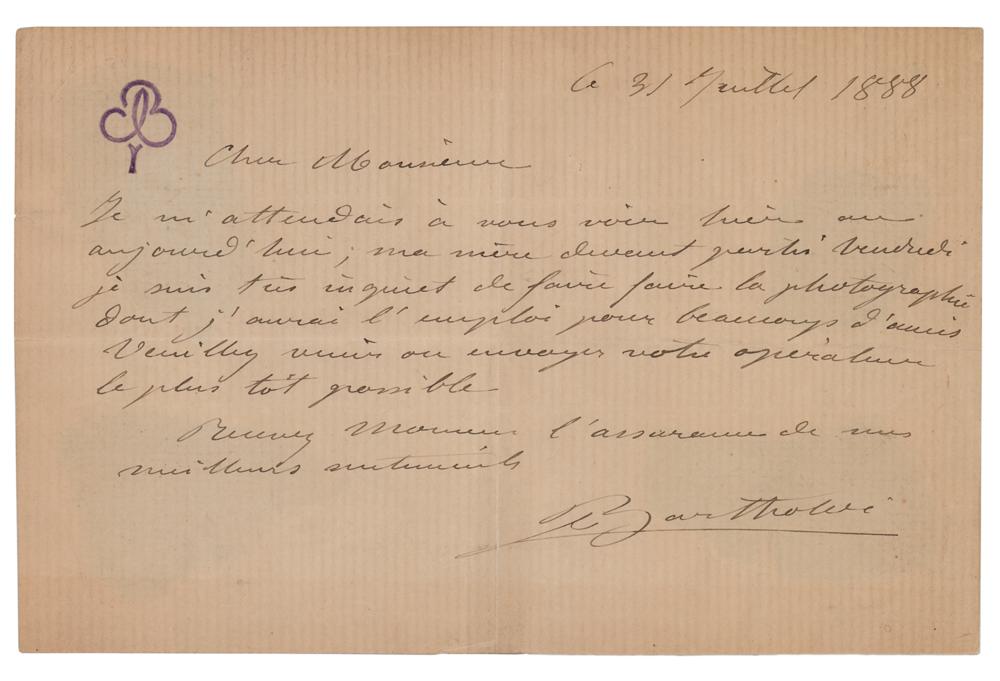 le 31 Juillet 1888
Cher Monsieur
Je m'attendais à vous voir hier ou
aujourd'hui; ma mère devant partir Vendredi
je suis très inquiet de faire faire la photographie
dont j'aurai l'emploi pour beaucoup d'amis
Veuillez venir ou envoyer votre opérateur
le plus tôt possible
Recevez Monsieur l'assurance de mes
meilleurs sentiments
Bartholdi